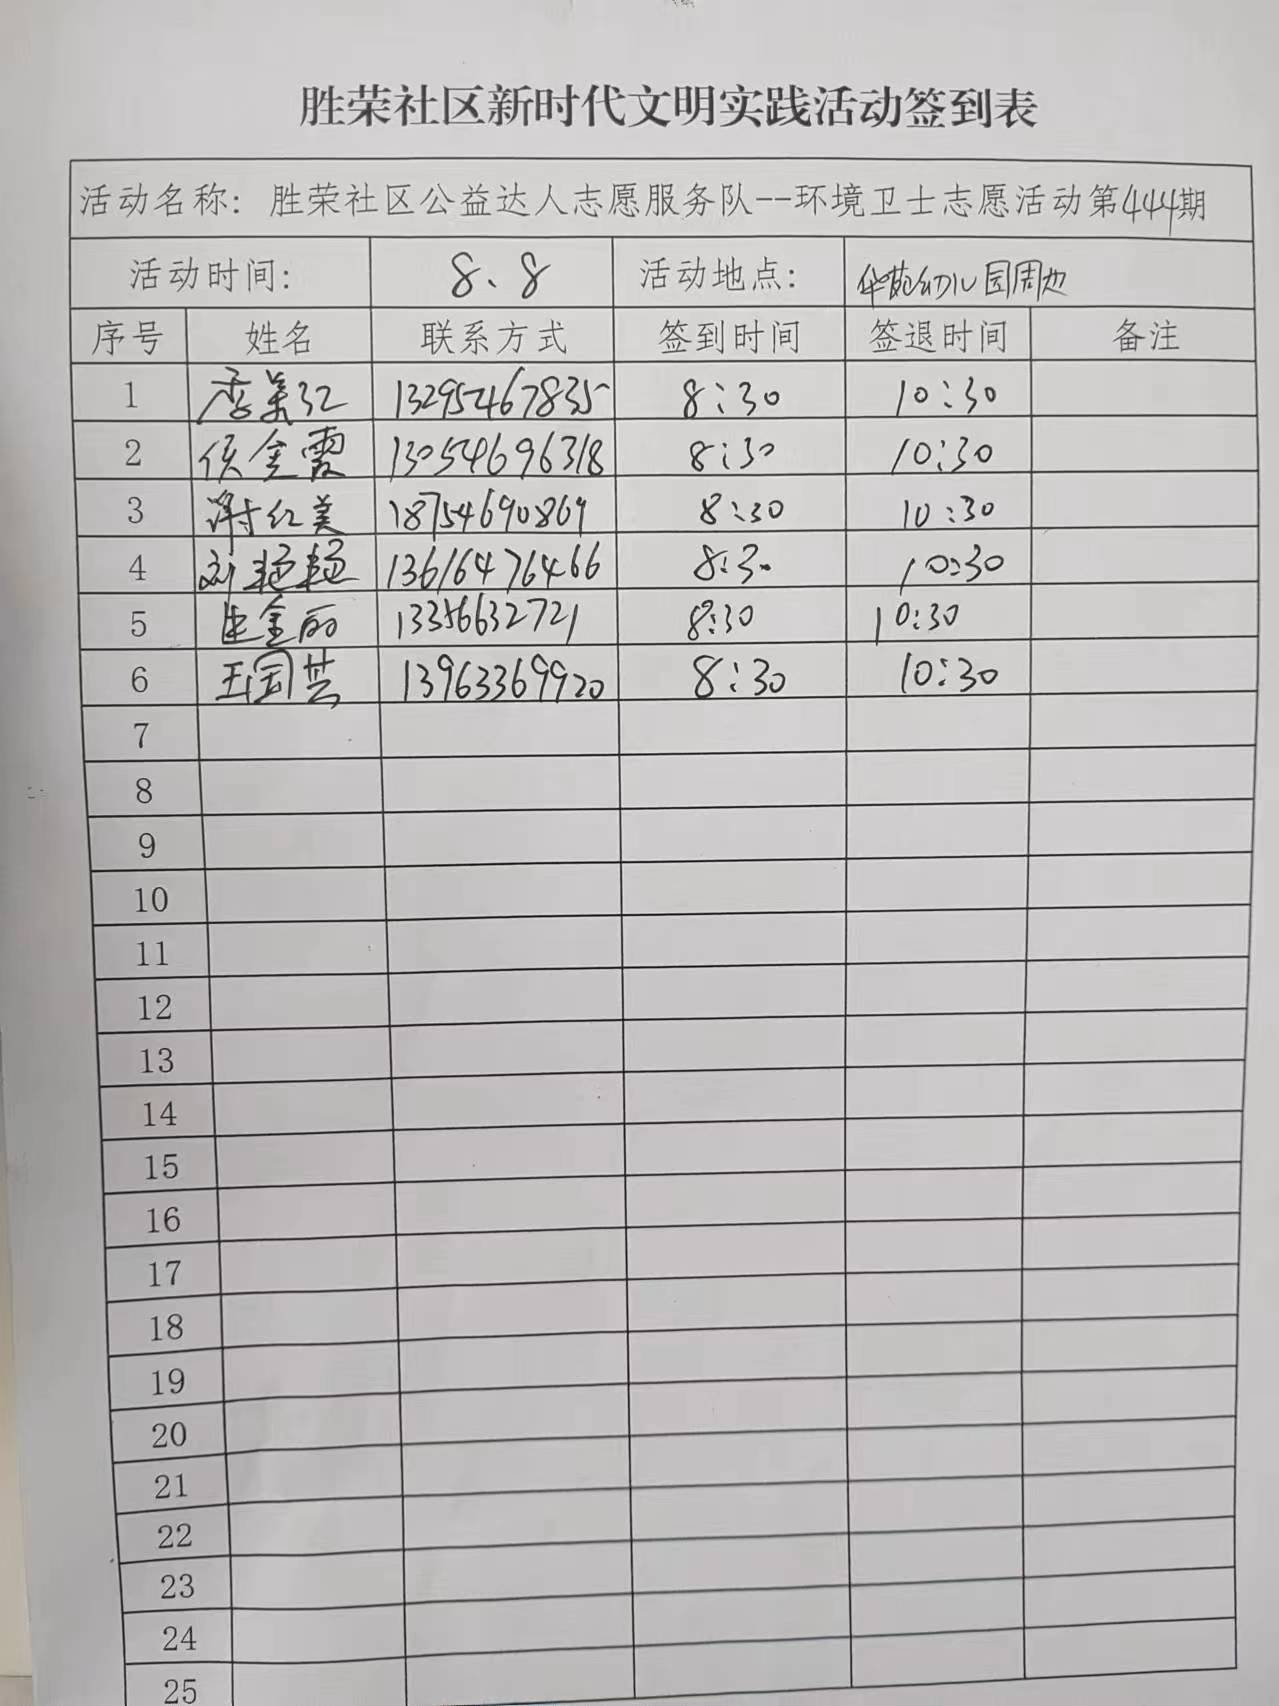 胜荣社区新时代文明实践活动签到表
活动名称：胜荣社区公益达人志愿服务队--环境卫士志愿活动第444期
活动时间： 8、8 活动地点： 华苑幼儿园周边
序号 姓名 联系方式 签到时间 签退时间 备注
1 李美红 13295467835 8:30 10:30
2 侯金霞 13054696318 8:30 10:30
3 谢红美 18754690869 8:30 10:30
4 刘艳艳 13616476466 8:30 10:30
5 金丽 13356632721 8:30 10:30
6 王国芸 13963369920 8:30 10:30
7
8
9
10
11
12
13
14
15
16
17
18
19
20
21
22
23
24
25